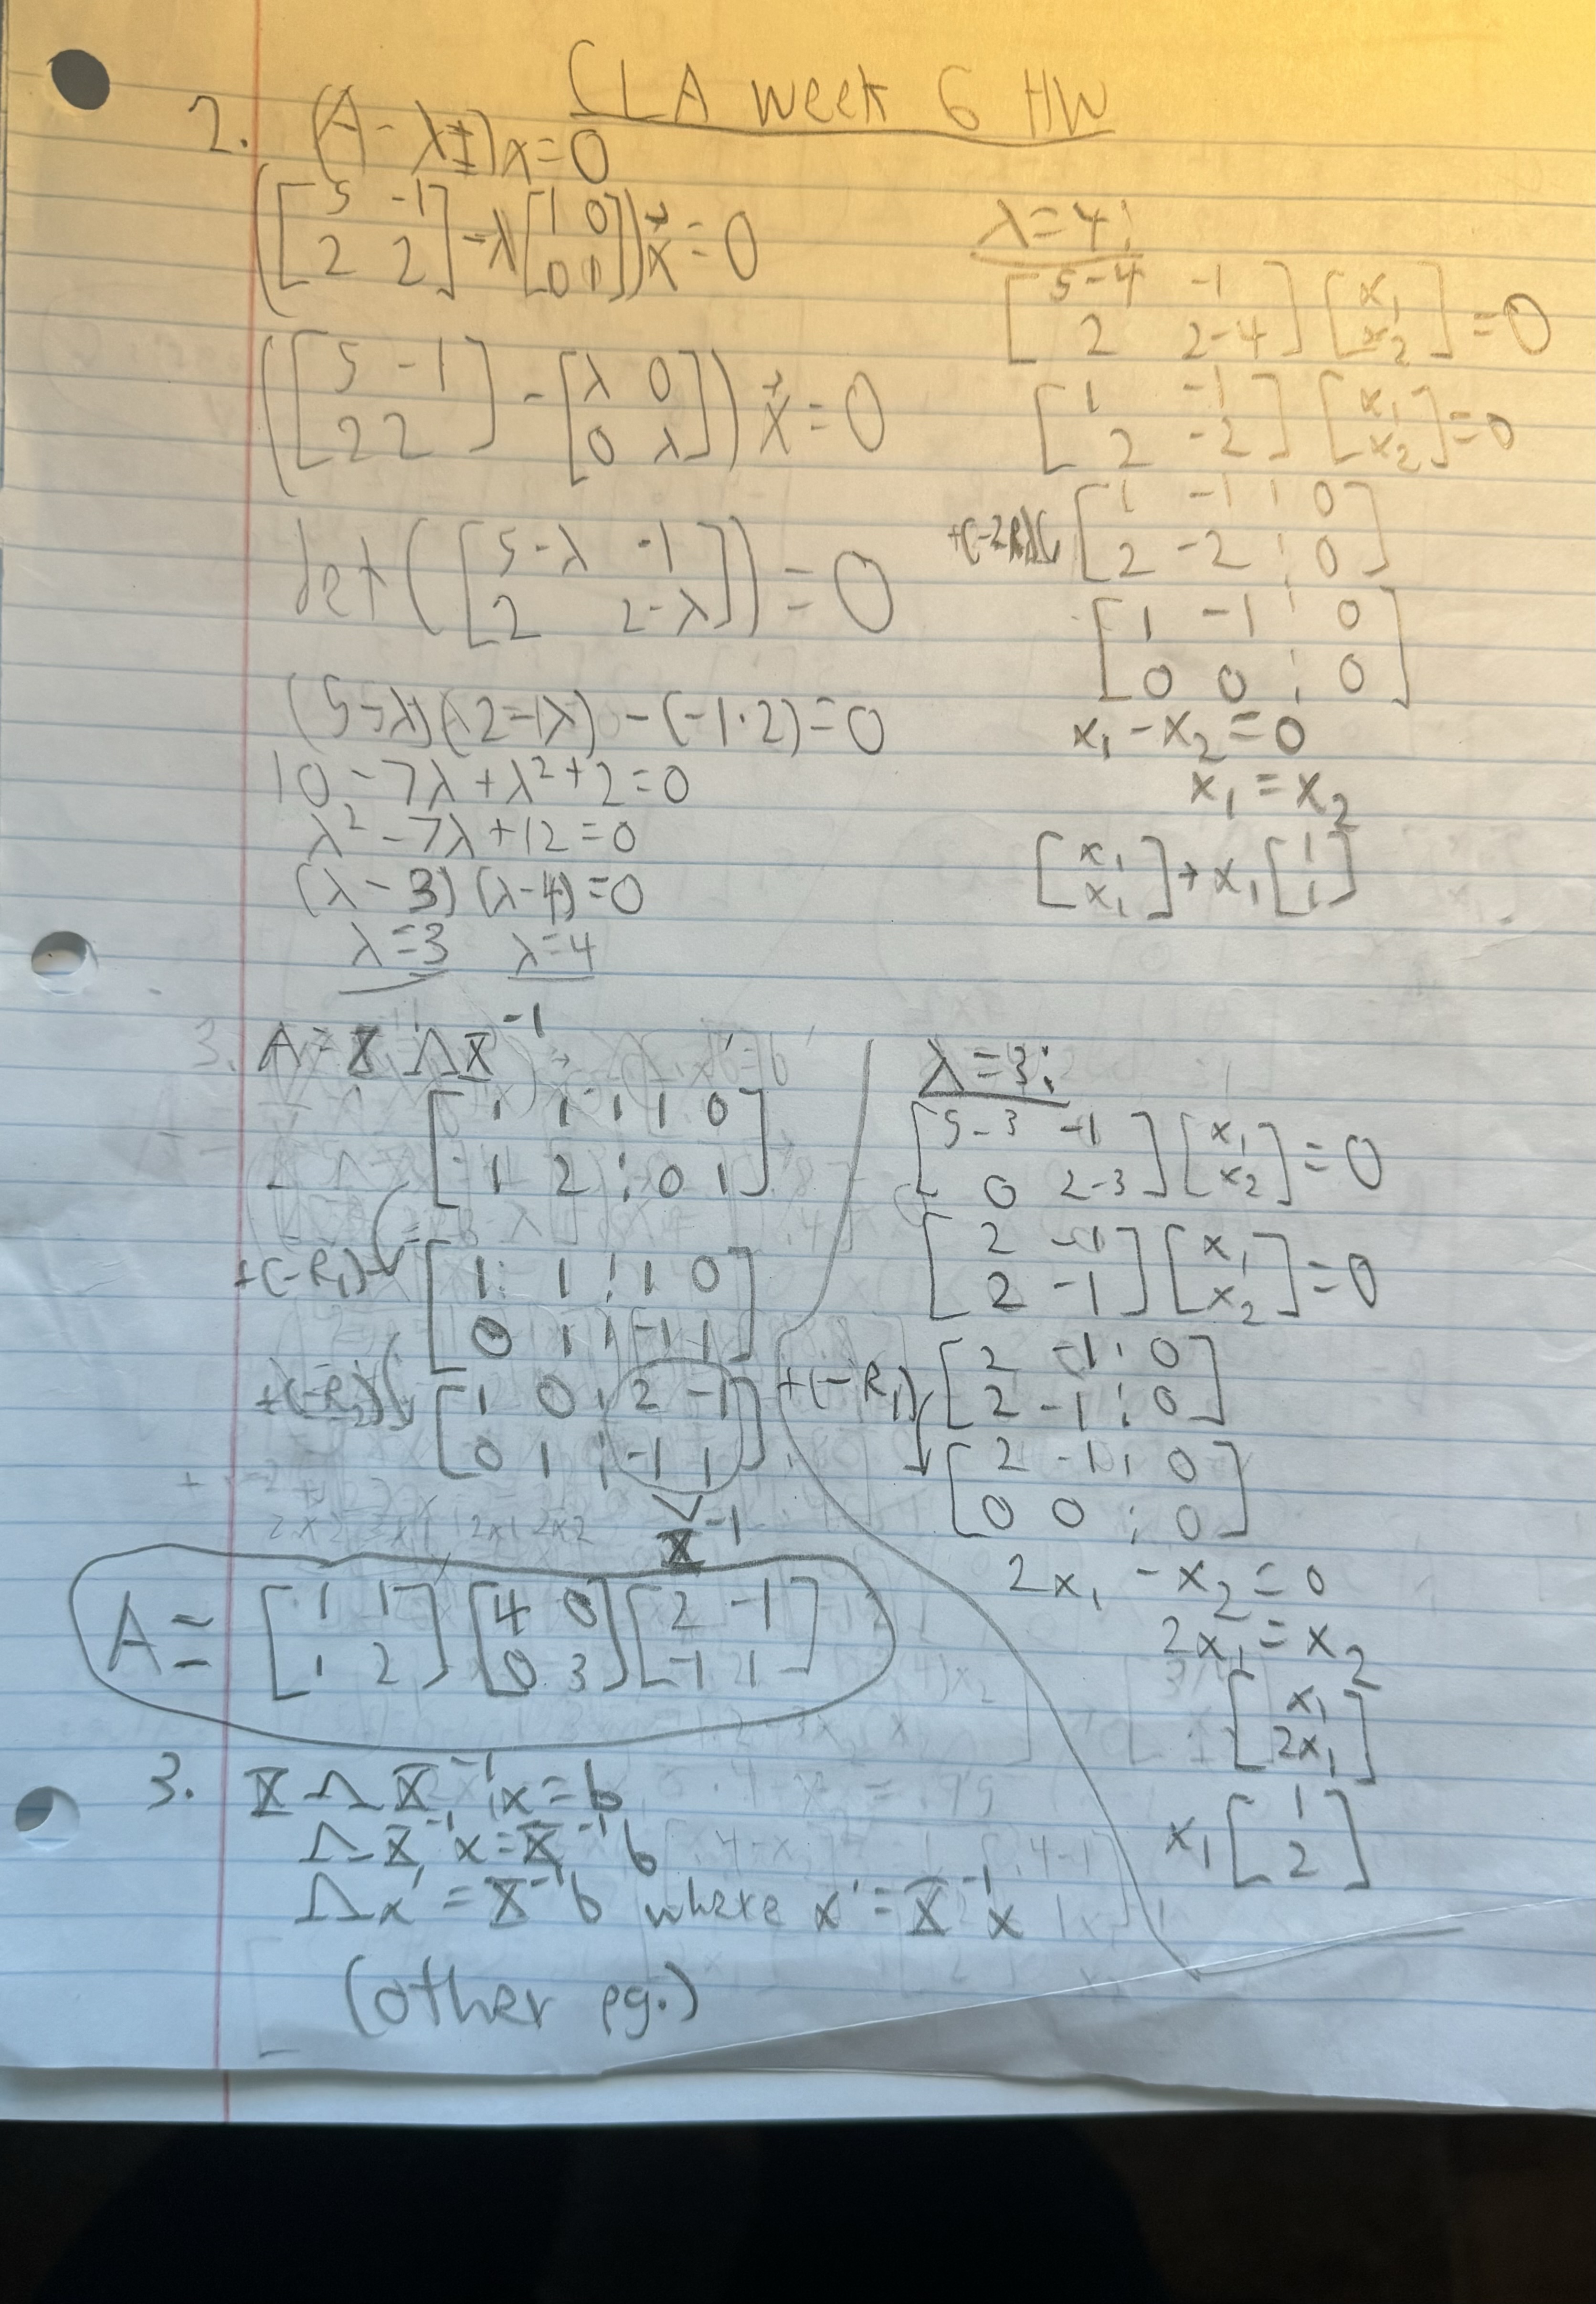 CLA week 6 HW
2. (A - λI)x = 0
([5 -1; 2 2] - λ[1 0; 0 1])x⃗ = 0
([5 -1; 2 2] - [λ 0; 0 λ])x⃗ = 0
det([5-λ -1; 2 2-λ]) = 0
(5-λ)(2-λ) - (-1·2) = 0
10 - 7λ + λ² + 2 = 0
λ² - 7λ + 12 = 0
(λ - 3)(λ - 4) = 0
λ = 3 λ = 4
λ = 4:
[5-4 -1; 2 2-4][x₁; x₂] = 0
[1 -1; 2 -2][x₁; x₂] = 0
+(-2R₁) [1 -1 ¦ 0; 2 -2 ¦ 0]
[1 -1 ¦ 0; 0 0 ¦ 0]
x₁ - x₂ = 0
x₁ = x₂
[x₁; x₁] → x₁[1; 1]
3. A = X Λ X⁻¹
[1 1 ¦ 1 0; 1 2 ¦ 0 1]
+(-R₁) [1 1 ¦ 1 0; 0 1 ¦ -1 1]
+(-R₂) [1 0 ¦ 2 -1; 0 1 ¦ -1 1]
X⁻¹
A = [1 1; 1 2][4 0; 0 3][2 -1; -1 1]
λ = 3:
[5-3 -1; 0 2-3][x₁; x₂] = 0
[2 -1; 2 -1][x₁; x₂] = 0
+(-R₁) [2 -1 ¦ 0; 2 -1 ¦ 0]
[2 -1 ¦ 0; 0 0 ¦ 0]
2x₁ - x₂ = 0
2x₁ = x₂
[x₁; 2x₁]
x₁[1; 2]
3. X Λ X⁻¹x = b
Λ X⁻¹x = X⁻¹b
Λx' = X⁻¹b where x' = X⁻¹x
(other pg.)